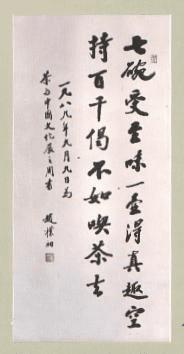 七碗受至味一壺得真趣空
持百千偈不如喫茶去
一九八九年九月九日為
茶与中國文化展示周書
趙樸初